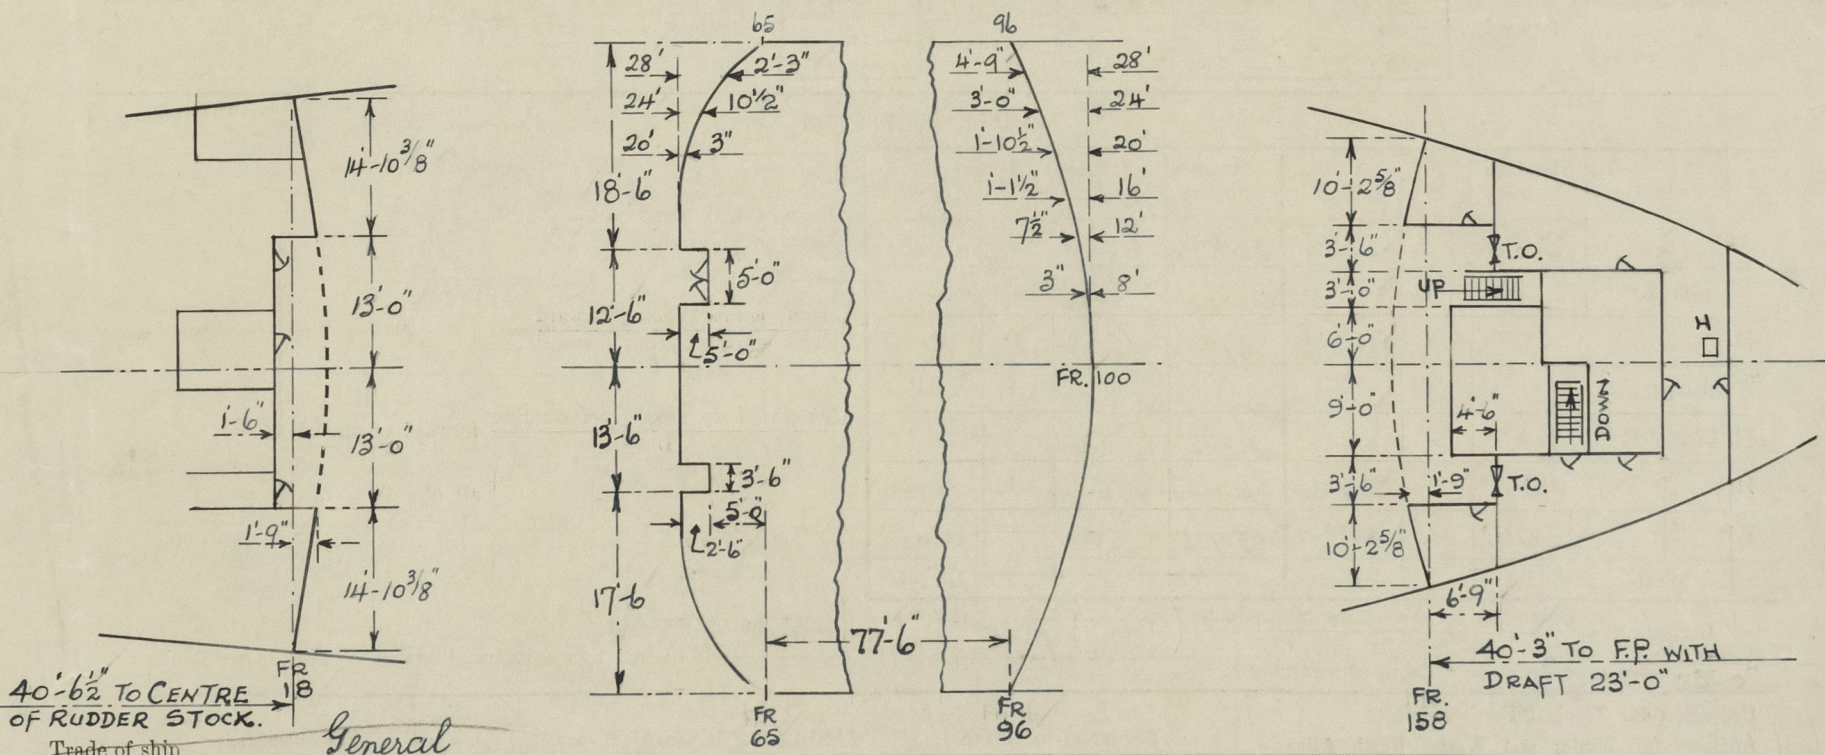 14'-10 3/8"
13'-0"
1'-6"
13'-0"
1'-9"
14'-10 3/8"
FR
18
40'-6 1/2" TO CENTRE
OF RUDDER STOCK.
Trade of ship
General
65
28' 2'-3"
24' 10 1/2"
20' 3"
18'-6"
5'-0"
12'-6"
5'-0"
13'-6"
3'-6"
5'-0
2'-6"
17'-6
77'-6"
FR
65
96
4'-9" 28'
3'-0" 24'
1'-10 1/2" 20'
1'-1 1/2" 16'
7 1/2" 12'
3" 8'
FR. 100
FR
96
10'-2 5/8"
3'-6" T.O.
3'-0" UP
6'-0"
H
9'-0" 4'-6" DOWN
3'-6" 1'-9" T.O.
10'-2 5/8"
6'-9"
40'-3" TO F.P. WITH
DRAFT 23'-0"
FR.
158